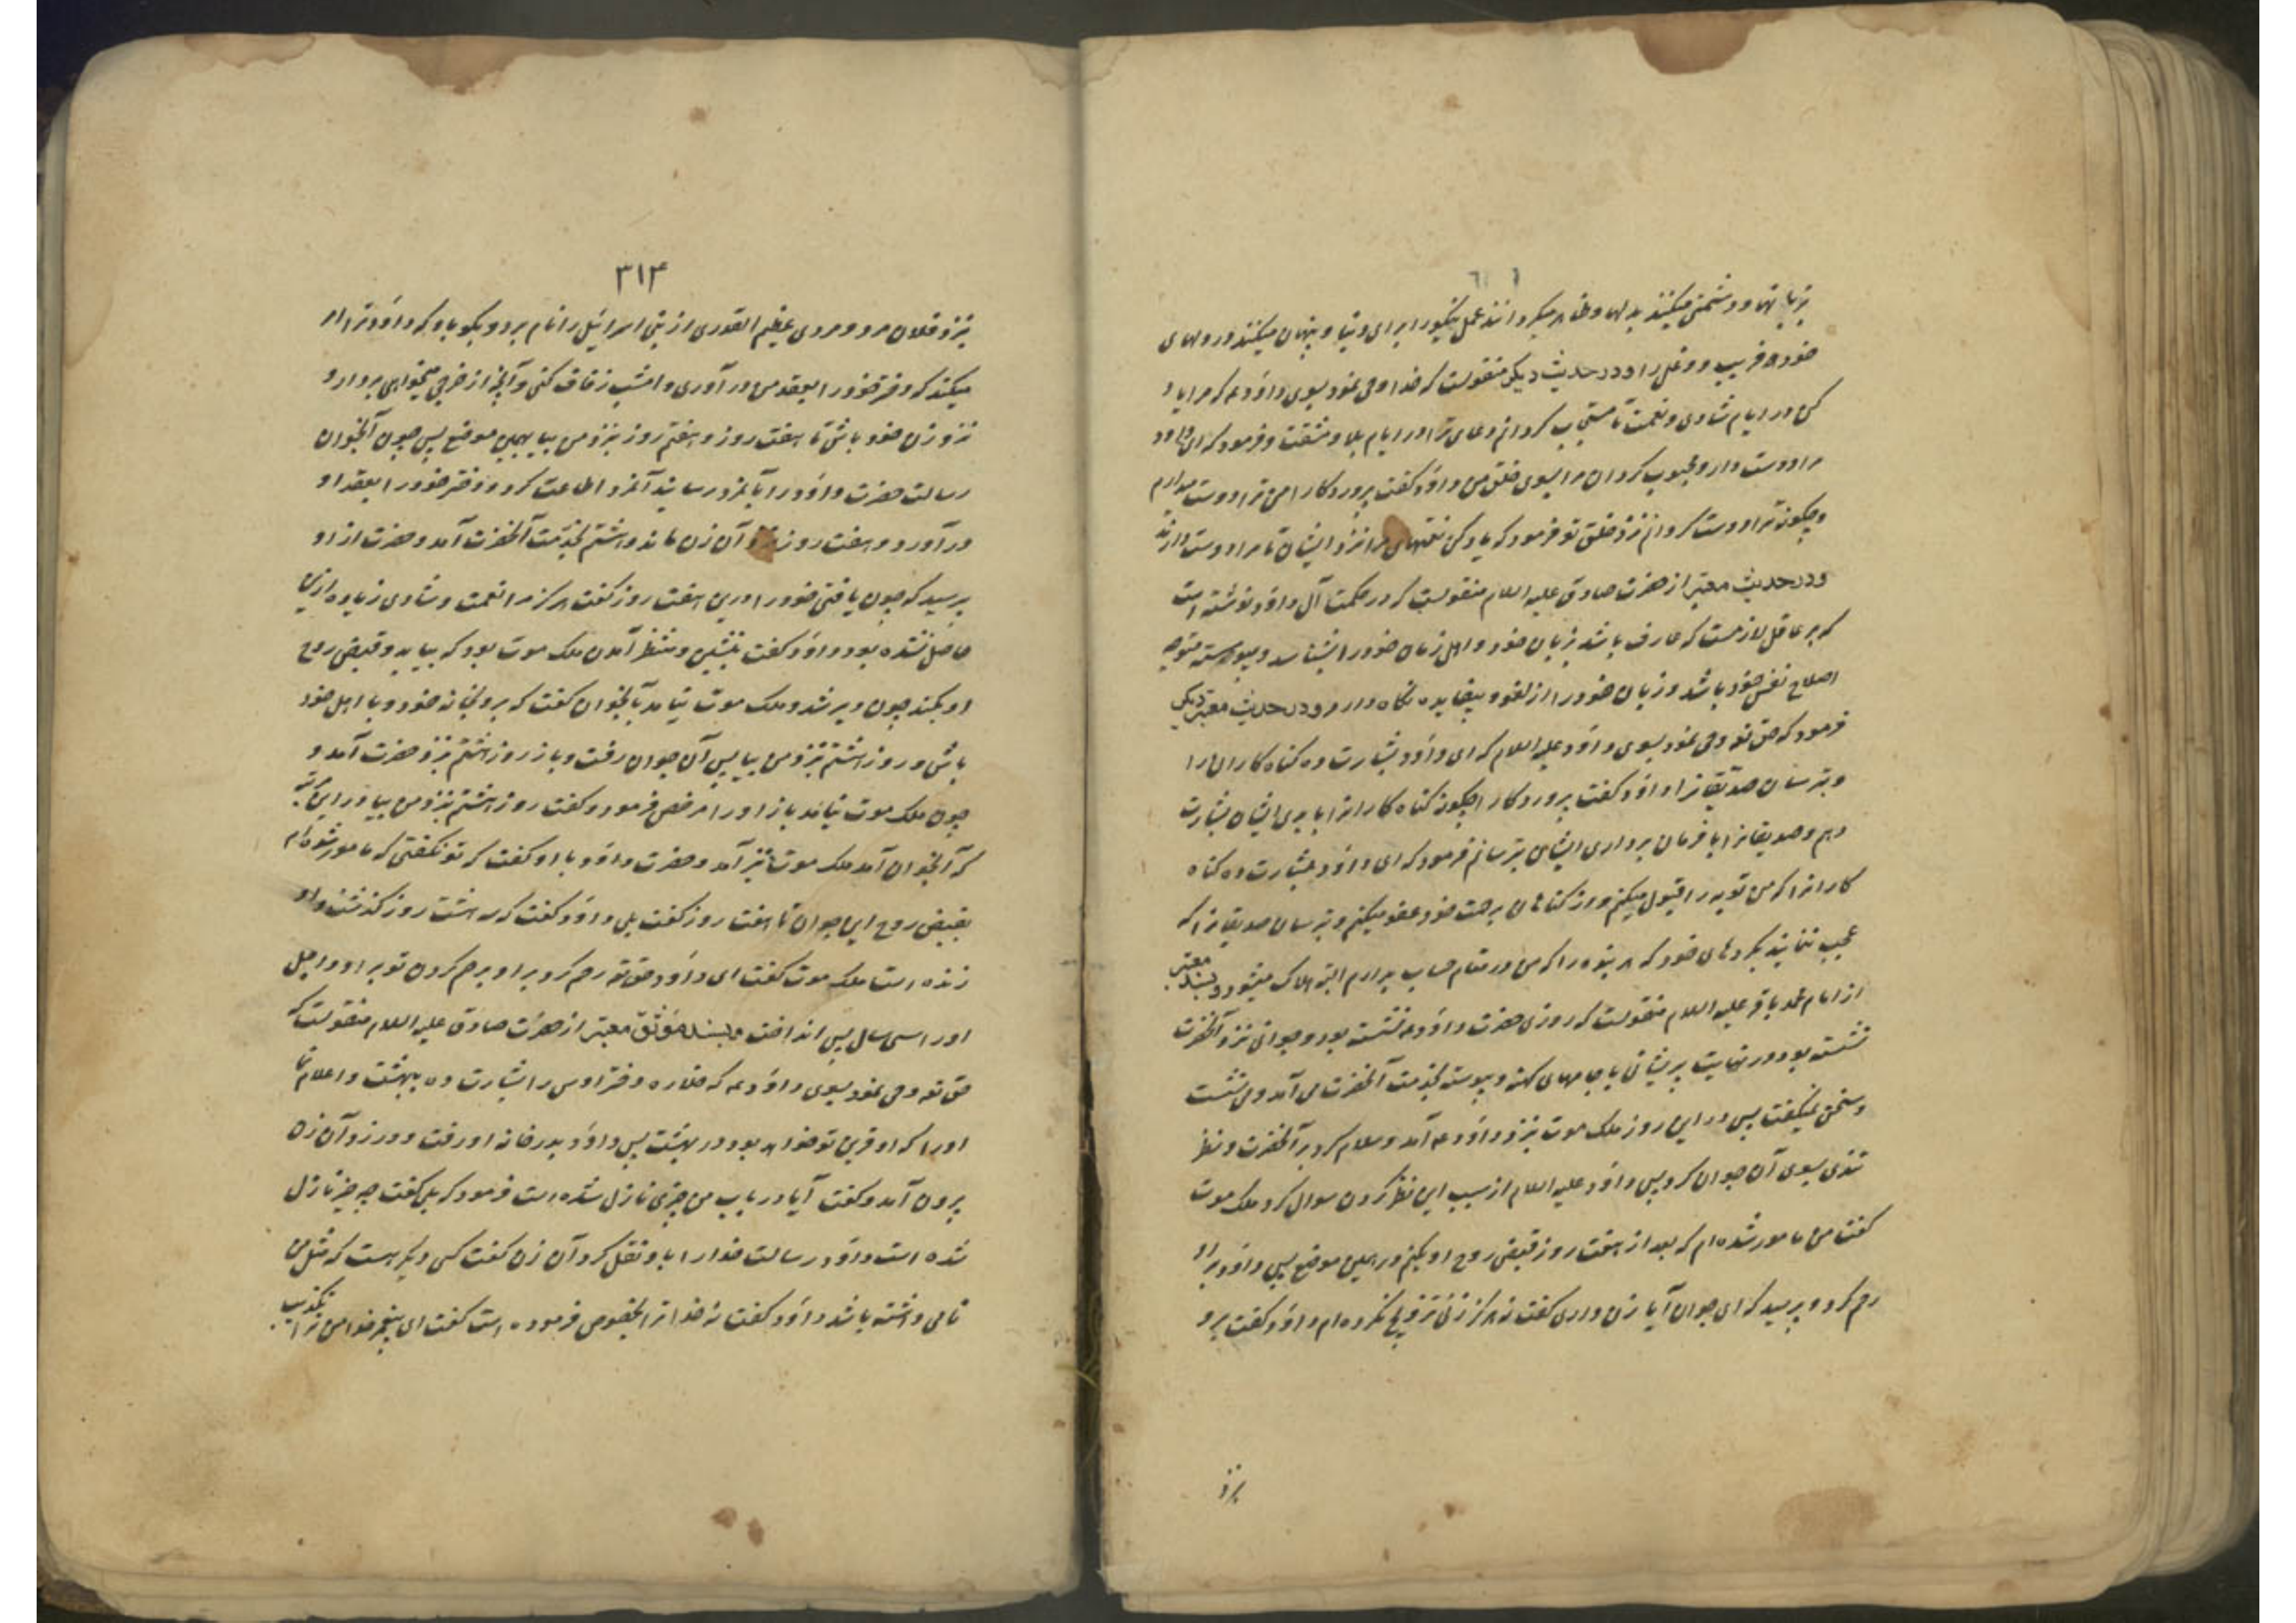 بزبانها و دشمنی میکنند بدلها و ظاهر میکردانند عمل نیکو را برای دنیا و پنهان میکنند در دلهای
خود فریب و دغل را و در حدیث دیکر منقولست که خدا وحی نمود بسوی داود ع که مرا یاد
کن در ایام شادی و نعمت تا مستجاب کردانم دعای ترا در ایام بلا و مشقت و فرمود که ای داود
مرا دوست دار و محبوب کردان مرا بسوی خلق من داود کفت پروردکارا من ترا دوست میدارم
و چکونه ترا دوست کردانم نزد خلق تو فرمود که یاد کن نعمتهای مرا نزد ایشان تا مرا دوست دارند
و در حدیث معتبر از حضرت صادق علیه السلام منقولست که در حکمت آل داود نوشته است
که بر عاقل لازمست که عارف باشد بزبان خود و اهل زمان خود را بشناسد و پیوسته متوجه
اصلاح نفس خود باشد و زبان خود را از لغو و بیفایده نکاه دارد و در حدیث معتبر دیکر
فرمود که حق تع وحی نمود بسوی داود علیه السلام که ای داود بشارت ده کناه کارانرا
و بترسان صدیقانرا داود کفت پروردکارا چکونه کناه کارانرا با بدی ایشان بشارت
دهم و صدیقانرا با فرمان برداری ایشان بترسانم فرمود که ای داود بشارت ده کناه
کارانرا که من توبه را قبول میکنم و از کناهان برحمت خود عفو میکنم و بترسان صدیقانرا که
عجب ننمایند بکردهای خود که هر بنده را که من در مقام حساب بدارم البته هلاک میشود و بسند معتبر
از امام محمد باقر علیه السلام منقولست که روزی حضرت داود ع نشسته بود و جوانی نزد آنحضرت
نشسته بود در نهایت پریشانی با جامهای کهنه و پیوسته بخدمت آنحضرت می آمد و می نشست
و سخن نمیکفت پس در این روز ملک موت بنزد داود ع آمد و سلام کرد بر آنحضرت و نظر
تندی بسوی آن جوان کرد پس داود علیه السلام از سبب این نظر کردن سوال کرد ملک موت
کفت من مامور شده ام که بعد از هفت روز قبض روح او بکنم در همین موضع پس داود بر او
رحم کرد و پرسید که ای جوان آیا زن داری کفت نه هرکز زنی تزویج نکرده ام داود کفت برو
بنزد
۳۱۴
بنزد فلان مرد و مردی عظیم القدری از بنی اسرائیل را نام برد و بکو باو که داود ترا امر
میکند که دختر خود را بعقد من در آوری و امشب زفاف کنی و آنچه از خرجی میخواهی بردار و
نزد زن خود باش تا هفت روز و هفتم روز بنزد من بیا بهمین موضع پس چون آنجوان
رسالت حضرت داود را بآنمرد رسانید آنمرد اطاعت کرده دختر خود را بعقد او
در آورد و هفت روز نزد آن زن ماند و هشتم بخدمت آنحضرت آمد و حضرت از او
پرسید که چون یافتی خود را در این هفت روز کفت هرکز مرا نعمت و شادی زیاده از این
حاصل نشده بود داود کفت بنشین و منتظر آمدن ملک موت بود که بیاید و قبض روح
او بکند چون دیر شد و ملک موت نیامد بآنجوان کفت که برو بخانه خود و با اهل خود
باش و روز هشتم بنزد من بیا پس آن جوان رفت و باز روز هشتم بنزد حضرت آمد و
چون ملک موت نیامد باز او را مرخص فرمود و کفت روز هشتم بنزد من بیا در این مرتبه
که آنجوان آمد ملک موت نیز آمد و حضرت داود با او کفت که تو نکفتی که مامور شده ام
بقبض روح این جوان تا هفت روز کفت بلی داود کفت که سه هشت روز کذشت و او
زنده است ملک موت کفت ای داود حق تع رحم کرد بر او برحم کردن تو بر او و اجل
او را سی سال پس انداخت و بسند موثق معتبر از حضرت صادق علیه السلام منقولست که
حق تع وحی نمود بسوی داود ع که خلاده دختر اوس را بشارت ده ببهشت و اعلام نما
او را که او قرین تو خواهد بود در بهشت پس داود بدر خانه او رفت و در زد آن زن
بیرون آمد و کفت آیا در باب من چیزی نازل شده است فرمود که بلی کفت چه چیز نازل
شده است داود رسالت خدا را باو نقل کرد آن زن کفت کسی دیکر هست که مثل من
نامی داشته باشد داود کفت نه خدا ترا بخصوص فرموده است کفت ای پیغمبر خدا من ترا تکذیب